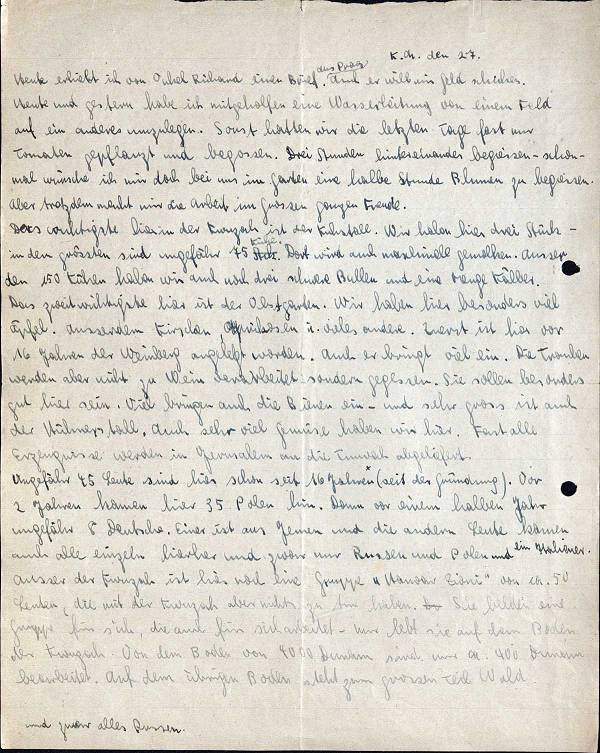 K.A. den 27.
aus Prag
Heute erhielt ich von Onkel Richard einen Brief. Auch er will mir Geld schicken.
Heute und gestern habe ich mitgeholfen eine Wasserleitung von einem Feld
auf ein anderes umzulegen. Sonst hatten wir die letzten Tage fast nur
Tomaten gepflanzt und begossen. Drei Stunden hintereinander begiessen - schon-
mal wünsche ich mir doch bei uns im Garten eine halbe Stunde Blumen zu begiessen.
Aber trotzdem macht mir die Arbeit im grossen ganzen Freude.
Das wichtigste hier in der Kwuzah ist der Kuhstall. Wir haben hier drei Stück -
in den grössten sind ungefähr 75 Kühe. Dort wird auch maschinell gemolken. Ausser
den 150 Kühen haben wir auch noch drei schwere Bullen und eine Menge Kälber.
Das zweitwichtigste hier ist der Obstgarten. Wir haben hier besonders viel
Äpfel. Ausserdem Kirschen Aprikosen u. vieles andere. Zuerst ist hier vor
16 Jahren der Weinberg angelegt worden. Auch er bringt viel ein. Die Trauben
werden aber nicht zu Wein verarbeitet sondern gegessen. Sie sollen besonders
gut hier sein. Viel bringen auch die Bienen ein - und sehr gross ist auch
der Hühnerstall. Auch sehr viel Gemüse haben wir hier. Fast alle
Erzeugnisse werden in Jerusalem an die Tnuvah abgeliefert.
Ungefähr 45 Leute sind hier schon seit 16 Jahren x (seit der Gründung). Vor
2 Jahren kamen hier 35 Polen hin. Dann vor einem halben Jahr
ungefähr 8 Deutsche. Einer ist aus Jemen und die andern Leute kamen
auch alle einzeln hierher und zwar nur Russen und Polen und ein Italiener.
Ausser der Kwuzah ist hier noch eine Gruppe "Hanoar Zioni" von ca. 50
Leuten, die mit der Kwuzah aber nichts zu tun haben. Sie bilden eine
Gruppe für sich, die auch für sich arbeitet - nur lebt sie auf dem Boden
der Kwuzah. Von dem Boden von 4000 Dunam sind nur ca. 400 Dunam
bearbeitet. Auf dem übrigen Boden steht zum grossen Teil Wald.
und zwar alles Russen.